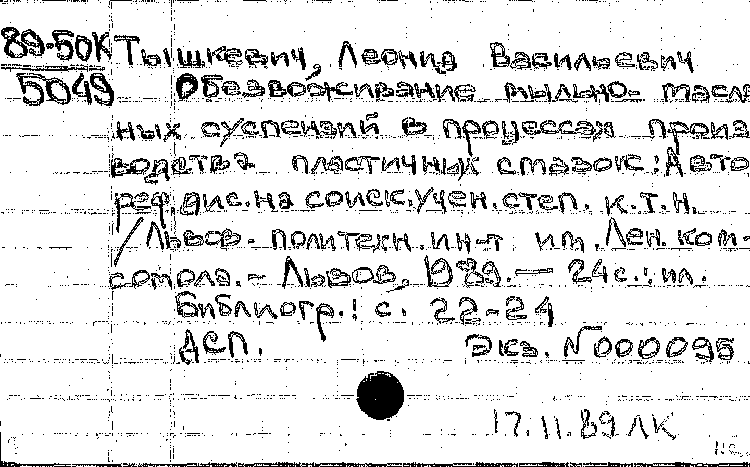 89-50К Тышкевич, Леонид Васильевич
5049 Обезвоживание мыльно-масля
ных суспензий в процессах произ
водства пластичных смазок: Авто
реф. дис. на соиск. учен. степ. к.т.н.
/Львов. политехн. ин-т им. Лен. ком-
сомола. - Львов, 1989. — 24 с.: ил.
Библиогр.: с. 22-24
ДСП. Экз. N000095
17.11.89 ЛК